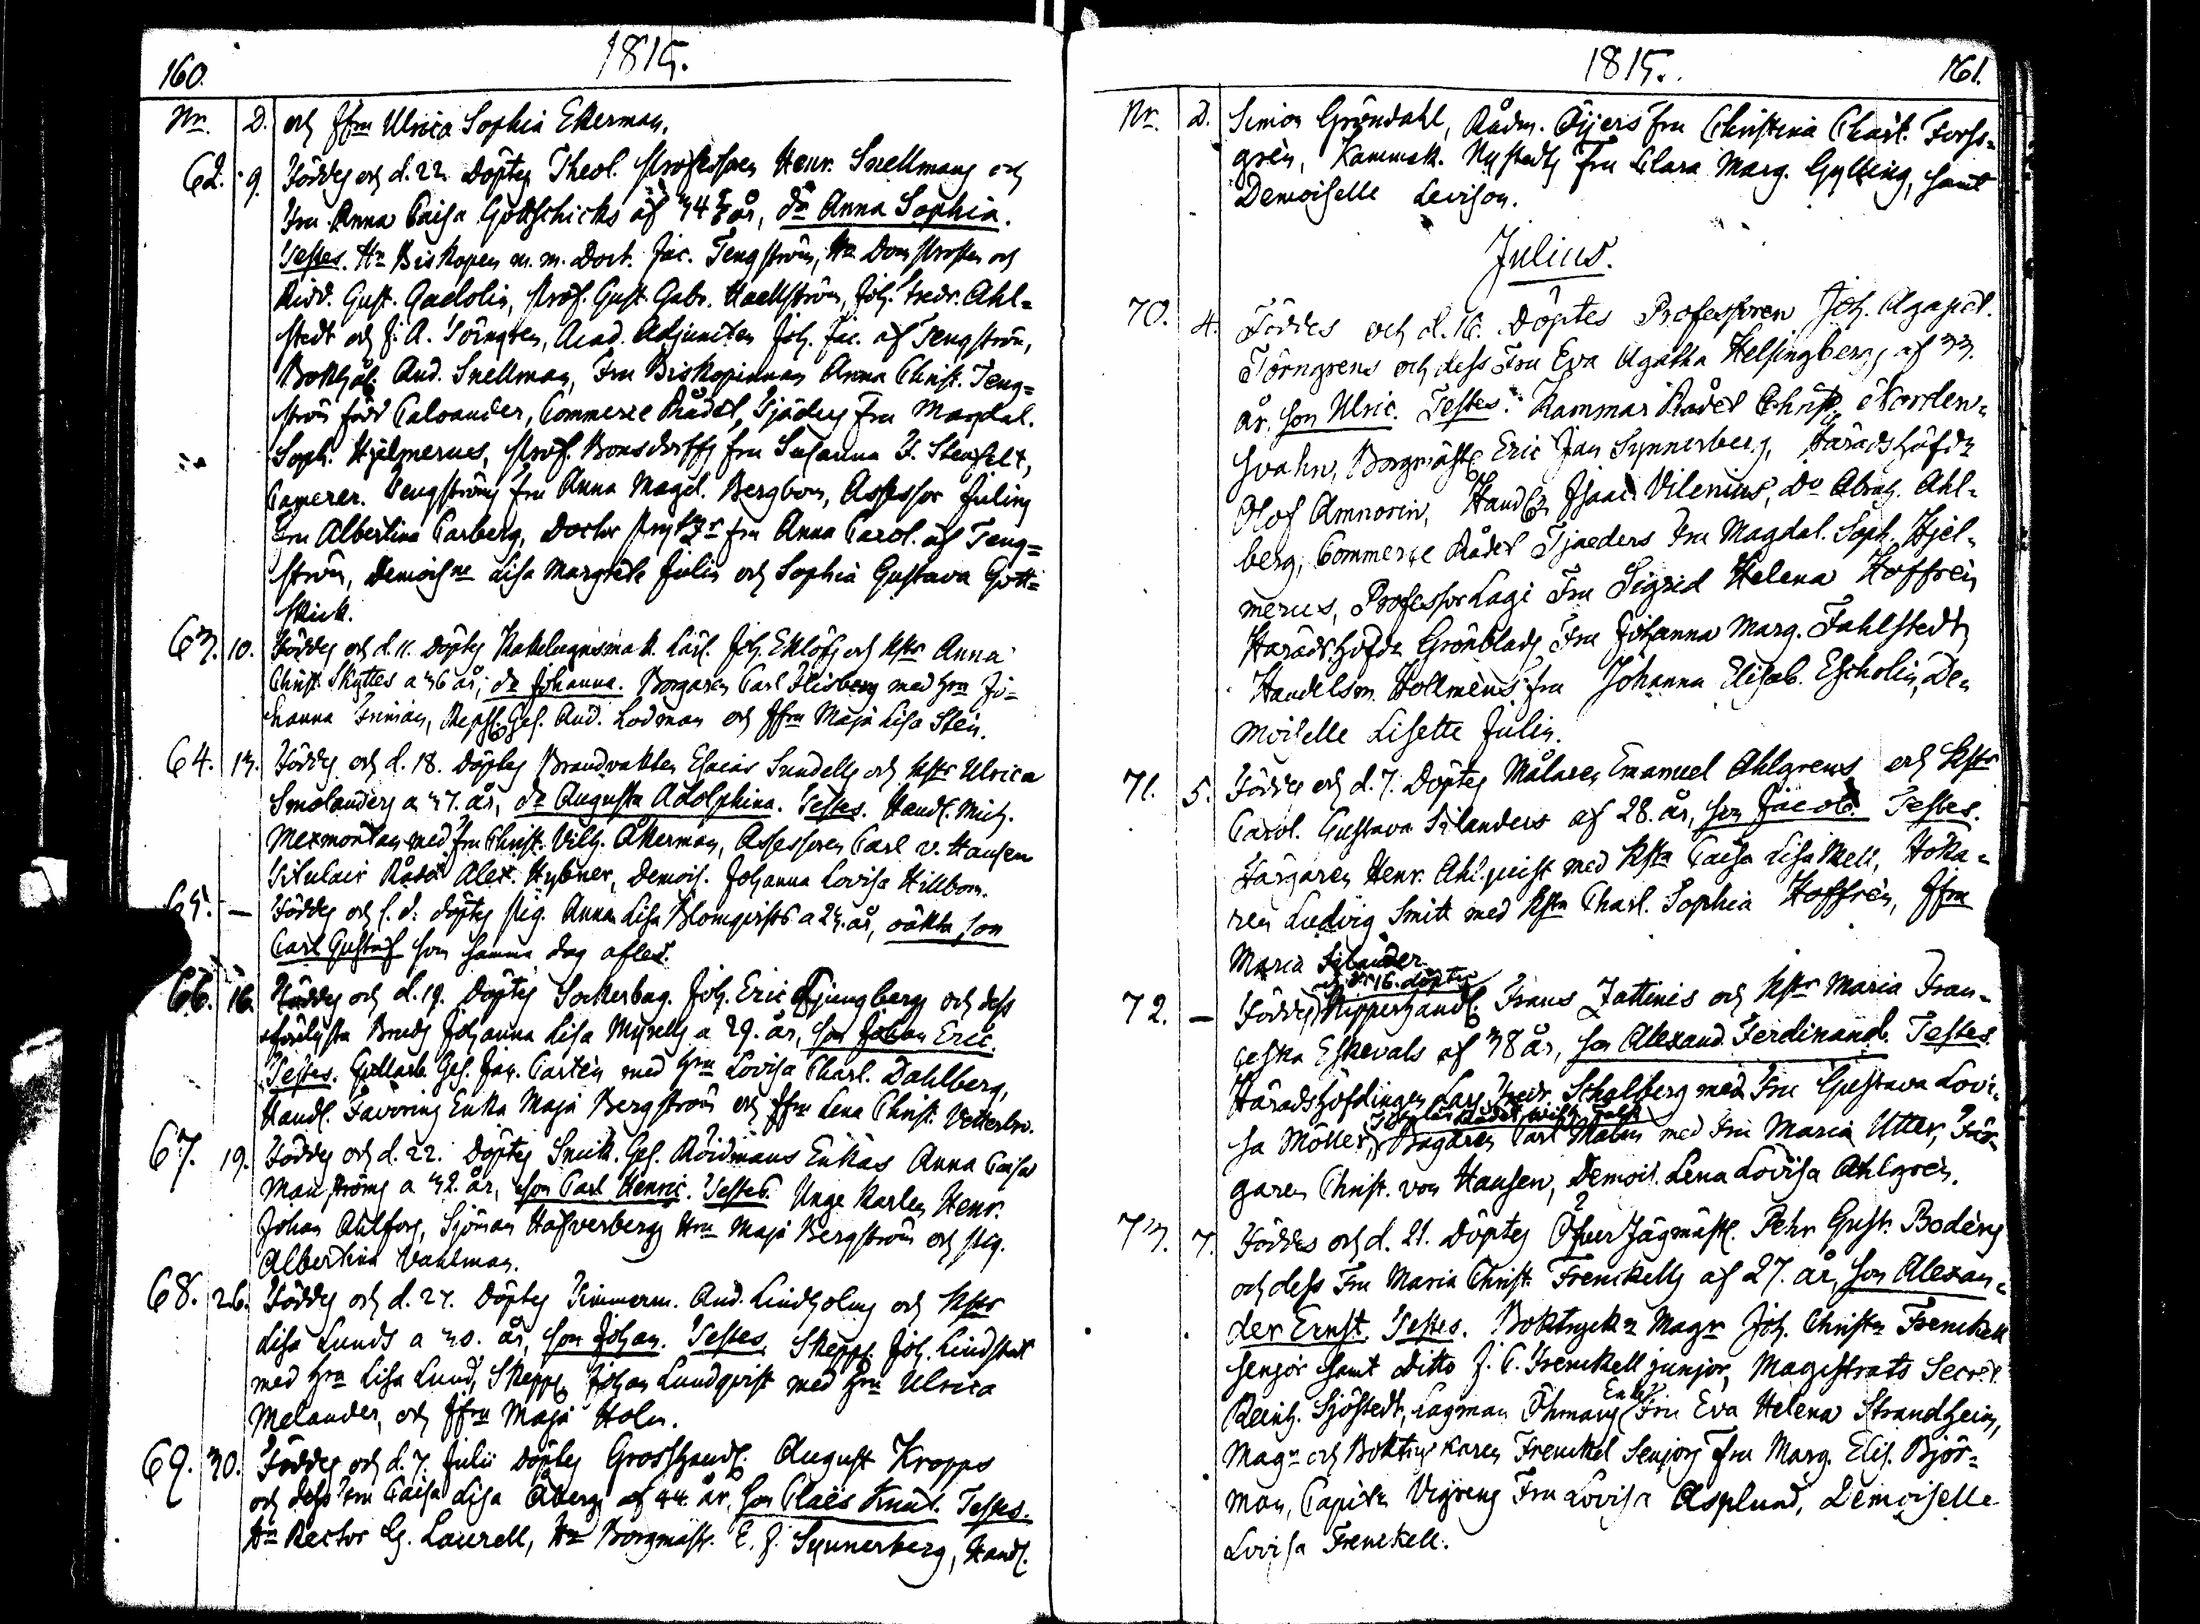 160.
1815.
Nr. D. och Jfru Ulrica Sophia Ekerman.
62. 9. Föddes och d. 22. döptes Theol. Professoren Henr. Snellmans och
Fru Anna Caisa Gottschicks af 34 år, dr Anna Sophia.
Testes. Hr Biskopen m. m. Doct. Jac. Tengström, Hr Dom Prosten och
Ridd. Gust. Gadolin, Prof. Gust. Gabr. Haellström, Joh. Fredr. Ahl-
stedt och J. A. Törngren, Acad. Adjuncten Joh. Jac. af Tengström,
Bokhål. And. Snellman, Fru Biskopinnan Anna Christ. Teng-
ström född Caloander, Commerce Rådet Tjäders fru Magdal.
Soph. Hjelmerus, Prof. Bonsdorffs fru Susanna
Camerer. Tengströms fru Anna Magd. Bergbom, Assessor Julins
Fru Albertina Carberg, Doctor fru Anna Carol. af Teng-
ström, Demoislne Lisa Margreta Julin och Sophia Gustava Gott-
skick.
63. 10. Föddes och d. 11. döptes Kakelugnsmak. Lärl. Joh. Eklöfs och Hstr Anna
Christ. Skyttes a 36 år, dr Johanna. Borgaren Carl Flisberg med hru Jo-
hanna Friman, Repsl. Ges. And. Lodman och Jfru Maja Lisa Sten.
64. 13. Föddes och d. 18. döptes Brandvakten Esaias Sundells och Hstr Ulrica
Smolanders a 37. år, dr Augusta Adolphina. Testes. Handl. Mich.
Mexmontan med fru Christ. Vilh. Åkerman, Assessoren Carl v. Hausen
Titulair Rådet Alex. Hybner, Demois. Johanna Lovisa Hillbom.
65. — Föddes och s. d. döptes pig. Anna Lisa Blomqvists a 23. år, oäkta son
Carl Gustaf som samma dag afled.
66. 16. Föddes och d. 19. döptes Sockerbag. Joh. Eric Ljungbergs och dess
Bruds Johanna Lisa Myrells a 29. år, son Johan Eric.
Testes. Gullarb. Ges. Jac. Cartén med hru Lovisa Charl. Dahlberg,
Handl. Favorins Enka Maja Bergström och Jfru Lena Christ. Vetterbr.
67. 19. Föddes och d. 22. döptes Smick. Ges. Röidmans Enkas Anna Caisa
Manströms a 32. år, son Carl Henric. Testes. Unge Karlen Henr.
Johan Ahlfors, Sjöman Hafverbergs Hru Maja Bergström och pig.
Albertina Vahlman.
68. 26. Föddes och d. 27. döptes Timmerm. And. Lindholms och Hstr
Lisa Lunds a 30. år, son Johan. Testes. Skepp. Joh. Lindstedt
med hru Lisa Lund, Skepp. Johan Lundqvist med hru Ulrica
Melander, och Jfru Maja Holm.
69. 30. Föddes och d. 7. Julii döptes Grosshandl. August Kropps
och dess Fru Caisa Lisa Åbergs af 44 år, son Claës Knut. Testes.
Hr Rector G. Laurell, Hr Borgmäst. E. J. Synnerberg, Handl.
1815.
161.
Nr. D. Simon Gröndahl, Rådm. Öijers fru Christina Charl. Forss-
grén, Kammak. Nystedts Fru Clara Marg. Gylling, samt
Demoiselle Levison.
Julius.
70. 4. Föddes och d. 16. döptes Professoren Joh. Agapet.
Törngrens och dess Fru Eva Agatha Helsingbergs af 33.
år, son Ulric. Testes. Kammar Rådet Christ. Norden-
svahn, Borgmäst. Eric Jan Synnerberg, Häradshöfdn
Olof Amnorin, Handl. Isaac Vilenius, Do Abrah. Ahl-
berg, Commerce Rådet Tjaeders Fru Magdal. Soph. Hjel-
merus, Professor Lagi Fru Sigrid Helena Hoffrén
Häradshöfdn Grönblads Fru Johanna Marg. Fahlstedt,
Handelsm. Hollméns fru Johanna Elisab. Escholin, De-
moiselle Lisette Julin.
71. 5. Föddes och d. 7. döptes Målaren Emanuel Ahlgrens och Hstr
Carol. Gustava Silanders af 28. år, son Jacob. Testes.
Färgaren Henr. Ahlquist med Hstru Caisa Lisa Mell, Hoka-
ren Ludvig Smitt med Hstru Charl. Sophia Hoffrén, Jfru
Maria Silander.
och d. 16. döptes
72. — Föddes Nipperhandl. Frans Zattinis och Hstr Maria Fran-
ceska Eskevals af 38 år, son Alexand. Ferdinand. Testes.
Häradshöfdingen Lars Fredr. Schalberg med Fru Gustava Lovi-
sa Möller, Bagaren Carl Malm med Fru Maria Utter, Fär-
garen Christ. von Hausen, Demois. Lena Lovisa Ahlgrén.
73. 7. Föddes och d. 21. döptes Öfver Jägmäst. Pehr Gust. Bodéns
och dess Fru Maria Christ. Frenckells af 27. år, son Alexan-
der Ernst. Testes. Boktryckn Magr Joh. Christn Frenckell
senjor samt Ditto J. C. Frenckell junjor, Magistrats Secret.
Reinh. Sjöstedt, Lagman Öhmans Enke Fru Eva Helena Strandheim,
Magn och Boktryckaren Frenckel Senjors Fru Marg. Elis. Björ-
man, Capiten Vigrens Fru Lovisa Asplund, Demoiselle
Lovisa Frenckell.